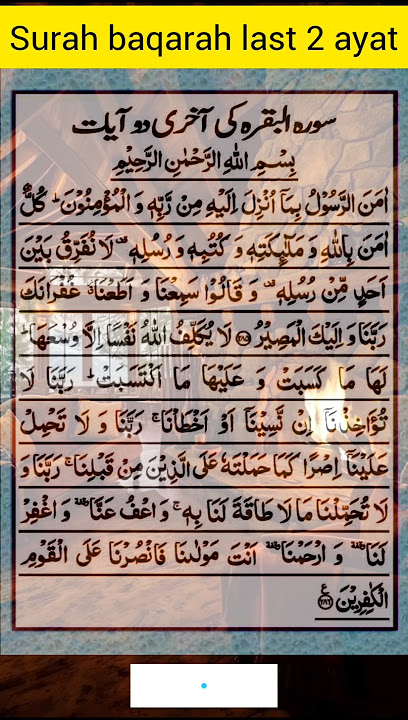 Surah baqarah last 2 ayat
سورہ البقرہ کی آخری دو آیات
بِسْمِ اللهِ الرَّحْمٰنِ الرَّحِيْمِ
اٰمَنَ الرَّسُوْلُ بِمَاۤ اُنْزِلَ اِلَيْهِ مِنْ رَّبِّهٖ وَ الْمُؤْمِنُوْنَ ؕ كُلٌّ
اٰمَنَ بِاللهِ وَ مَلٰٓىِٕكَتِهٖ وَ كُتُبِهٖ وَ رُسُلِهٖ ۫ لَا نُفَرِّقُ بَيْنَ
اَحَدٍ مِّنْ رُّسُلِهٖ ۫ وَ قَالُوْا سَمِعْنَا وَ اَطَعْنَا ۫ۗ غُفْرَانَكَ
رَبَّنَا وَ اِلَيْكَ الْمَصِيْرُ ﴿۲۸۵﴾ لَا يُكَلِّفُ اللهُ نَفْسًا اِلَّا وُسْعَهَا ؕ
لَهَا مَا كَسَبَتْ وَ عَلَيْهَا مَا اكْتَسَبَتْ ؕ رَبَّنَا لَا
تُؤَاخِذْنَاۤ اِنْ نَّسِيْنَاۤ اَوْ اَخْطَاْنَا ۚ رَبَّنَا وَ لَا تَحْمِلْ
عَلَيْنَاۤ اِصْرًا كَمَا حَمَلْتَهٗ عَلَى الَّذِيْنَ مِنْ قَبْلِنَا ۚ رَبَّنَا وَ
لَا تُحَمِّلْنَا مَا لَا طَاقَةَ لَنَا بِهٖ ۚ وَ اعْفُ عَنَّا ۥ وَ اغْفِرْ
لَنَا ۥ وَ ارْحَمْنَا ۥ اَنْتَ مَوْلٰىنَا فَانْصُرْنَا عَلَى الْقَوْمِ
الْكٰفِرِيْنَ ﴿۲۸۶﴾ ع